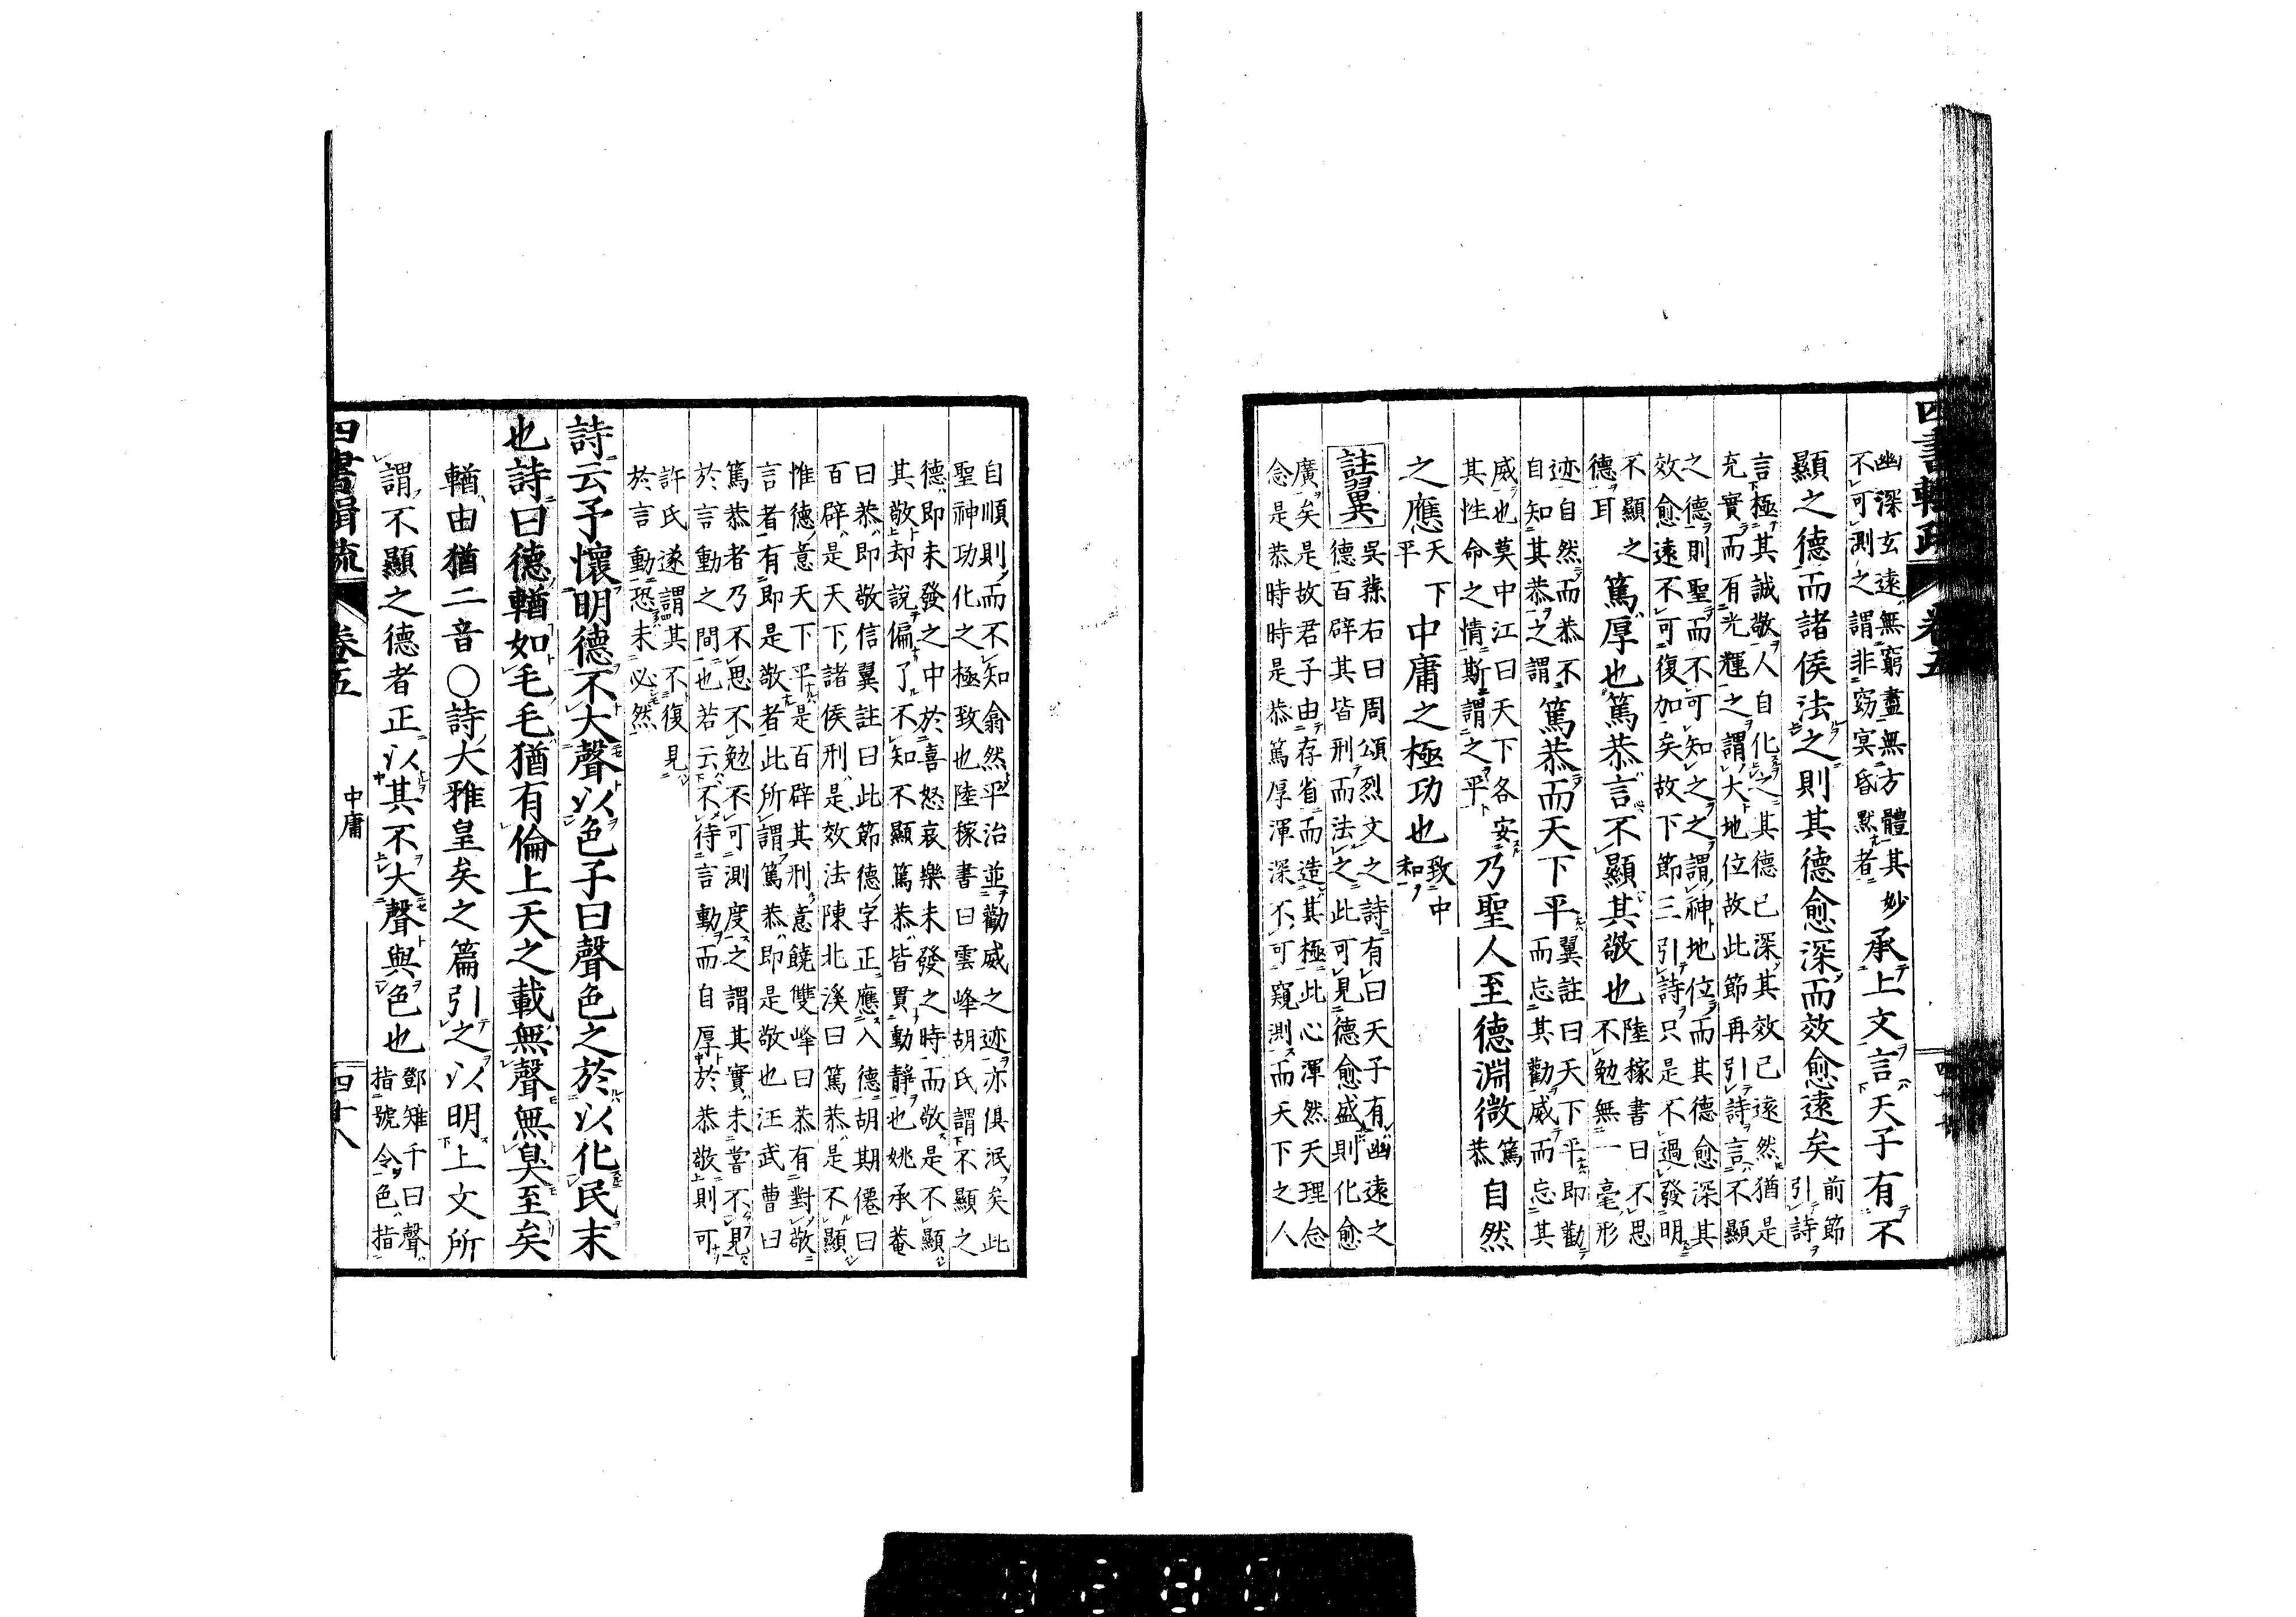 幽深玄遠無窮盡無方體其妙
不可測之謂非窈冥昏默者
承上文言天子有不
顯之德而諸侯法之則其德愈深而效愈遠矣
前節
引詩
言極其誠敬人自化之其德已深其效已遠然猶是
充實而有光輝之謂大地位故此節再引詩言不顯
之德則聖而不可知之之謂神地位而其德愈深其
效愈遠不可復加矣故下節三引詩只是不過發明
不顯之
德耳
篤厚也篤恭言不顯其敬也
陸稼書曰不思
不勉無一毫形
迹自然而恭不
自知其恭之謂
篤恭而天下平
翼註曰天下平即勸
而忘其勸威而忘其
威也莫中江曰天下各安
其性命之情斯謂之平
乃聖人至德淵微
篤
恭
自然
之應
天下
平
中庸之極功也
致中
和
註翼
吳蓀右曰周頌烈文之詩有曰天子有幽遠之
德百辟其皆刑而法之此可見德愈盛則化愈
廣矣是故君子由存省而造其極此心渾然天理念
念是恭時時是恭篤厚渾深不可窺測而天下之人
自順則而不知翕然平治並勸威之迹亦俱泯矣此
聖神功化之極致也陸稼書曰雲峰胡氏謂不顯之
德即未發之中於喜怒哀樂未發之時而敬是不顯
其敬却說偏了不知不顯篤恭皆貫動靜也姚承菴
曰恭即敬信翼註曰此節德字正應入德胡期僊曰
百辟是天下諸侯刑是效法陳北溪曰篤恭是不顯
惟德意天下平是百辟其刑意饒雙峰曰恭有對敬
言者有即是敬者此所謂篤恭即是敬也汪武曹曰
篤恭者乃不思不勉不可測度之謂其實未嘗不見
於言動之間也若云不待言動而自厚於恭敬則可
許氏遂謂其不復見
於言動恐未必然
詩云予懷明德不大聲以色子曰聲色之於以化民末
也詩曰德輶如毛毛猶有倫上天之載無聲無臭至矣
輶由猶二音○詩大雅皇矣之篇引之以明上文所
謂不顯之德者正以其不大聲與色也
鄧雉千曰聲
指號令色指
四書輯疏
卷五
中庸
四十八